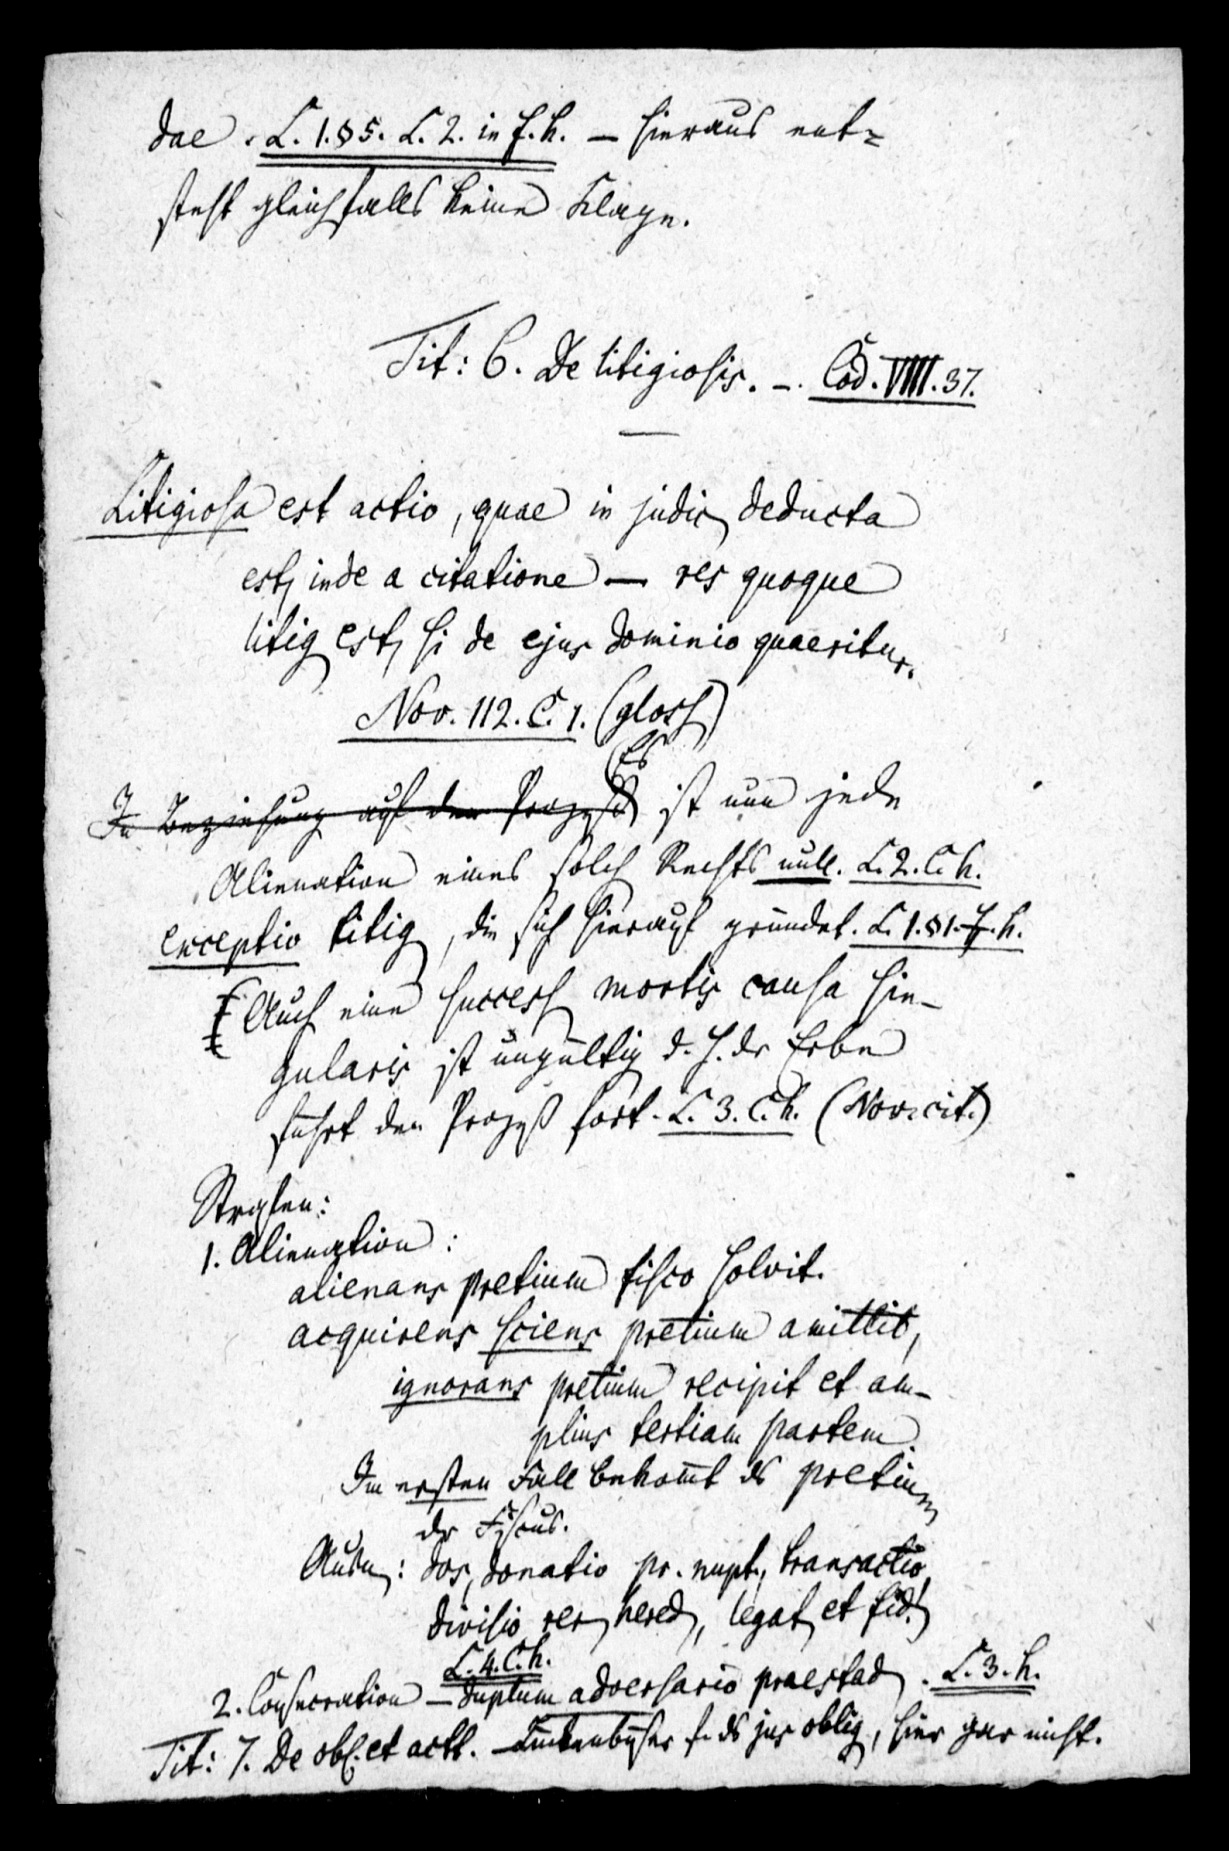 dae. L. 1. § 5. L. 2. in f. h. — hieraus ent=
steht gleichfalls keine Klage.
Tit: 6. De litigiosis. —. Cod. VIII. 37.
Litigiosa est actio, quae in judic deducta
est, inde a citatione — res quoque
litig est, si de ejus dominio quaeritur.
Nov. 112. C. 1. (gloss)
Es
In Beziehung auf den Prozeß ist nun jede
Alienation eines solch Rechts null. L. 2. C. h.
exceptio litig, die sich hierauf gründet. L. 1. § 1. f. h.
Auch eine success mortis causa sin-
gularis ist ungültig d. h. dr Erbe
führt den Prozeß fort. L. 3. C. h. (Nov. cit.)
Strafen:
1. Alienation:
alienans pretium fisco solvit.
acquirens sciens pretium amittit,
ignorans pretium recipit et am-
plius tertiam partem
Im ersten Fall bekom̅t ds pretium
dr Fiscus.
Ausn: dos, donatio pr. nupt., transactio,
divisio rer hered, legat et fid.
L. 4. C. h.
2. Consecration — duplum adversario praestad. L. 3. h.
Tit: 7. De obl. et act. — ds jus oblig, hier gar nicht.